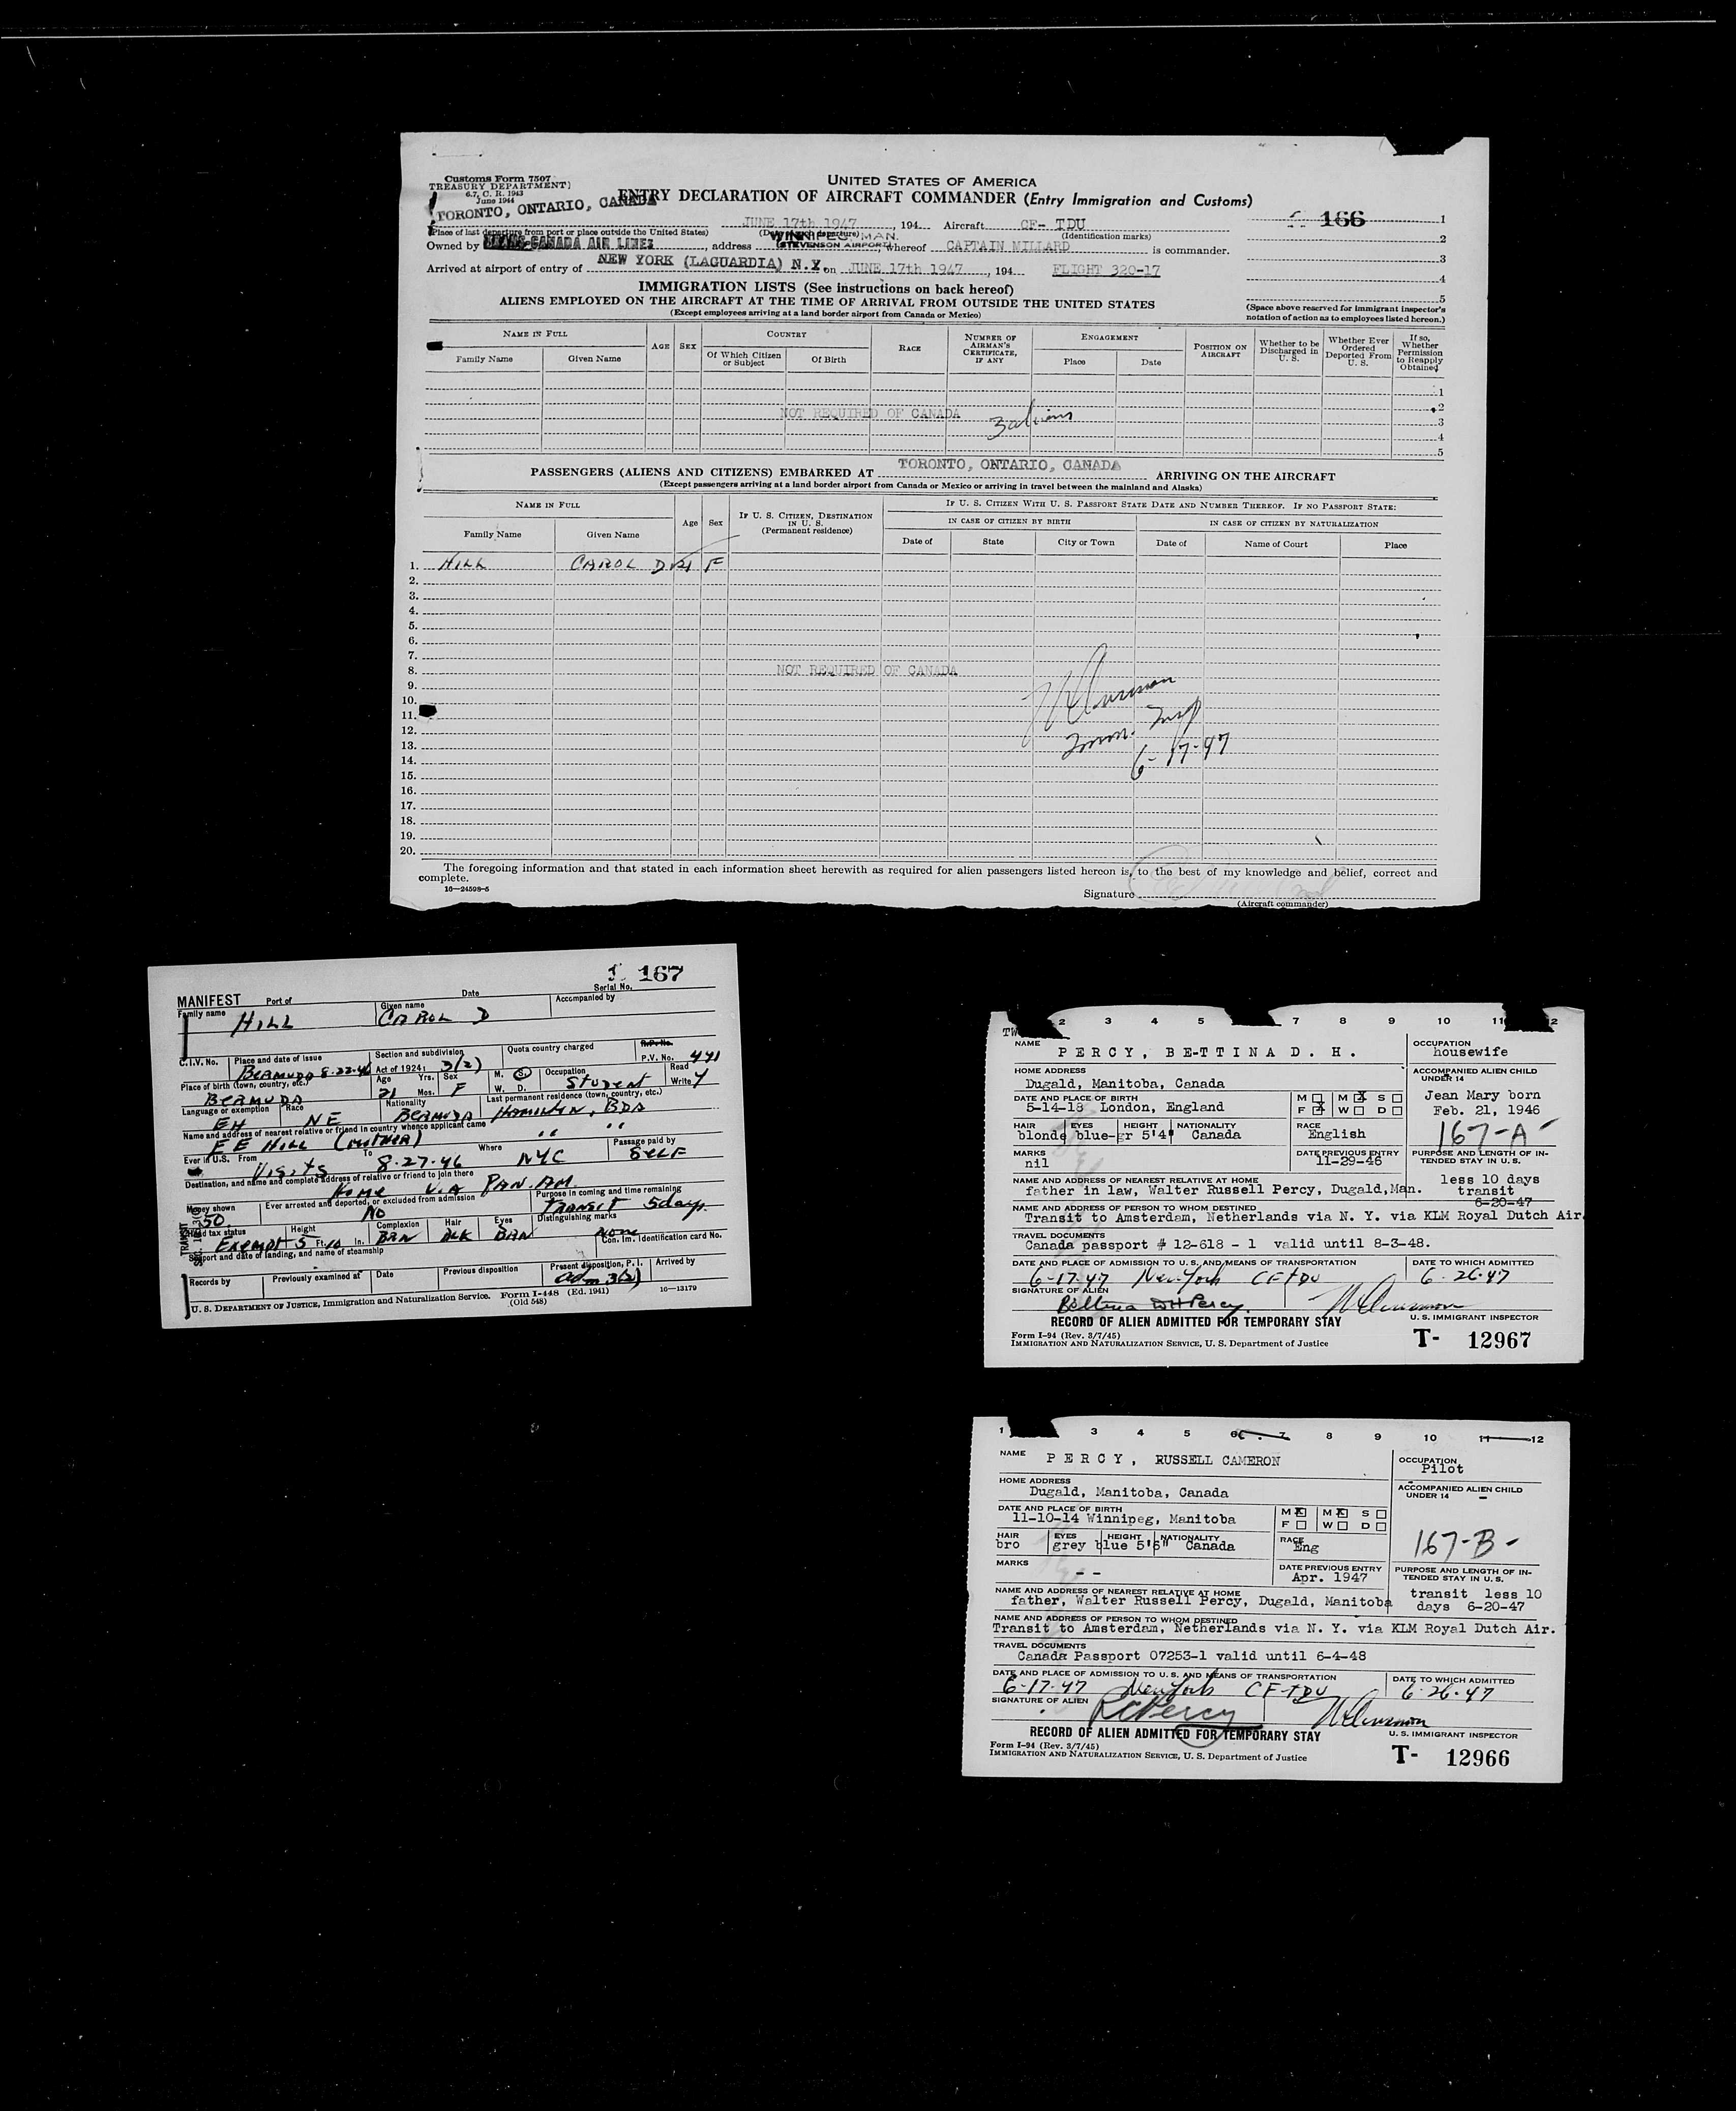 Customs Form 7507
TREASURY DEPARTMENT
6.7, C. R. 1943
June 1944
UNITED STATES OF AMERICA
ENTRY DECLARATION OF AIRCRAFT COMMANDER (Entry Immigration and Customs)
TORONTO, ONTARIO, CANADA JUNE 17th 1947, 194 Aircraft CF- TDU 166 1
(Place of last departure from port or place outside the United States) (Date of such departure) (Identification marks) 2
Owned by TRANS-CANADA AIR LINES, address WINNIPEG, MAN. (STEVENSON AIRPORT), whereof CAPTAIN MILLARD is commander. 3
Arrived at airport of entry of NEW YORK (LAGUARDIA) N.Y. on JUNE 17th 1947, 194 FLIGHT 320-17 4
5
IMMIGRATION LISTS (See instructions on back hereof)
ALIENS EMPLOYED ON THE AIRCRAFT AT THE TIME OF ARRIVAL FROM OUTSIDE THE UNITED STATES
(Except employees arriving at a land border airport from Canada or Mexico)
(Space above reserved for immigrant inspector's notation of action as to employees listed hereon.)
NAME IN FULL AGE SEX COUNTRY RACE NUMBER OF AIRMAN'S CERTIFICATE, IF ANY ENGAGEMENT POSITION ON AIRCRAFT Whether to be Discharged in U. S. Whether Ever Ordered Deported From U. S. If so, Whether Permission to Reapply Obtained
Family Name Given Name Of Which Citizen or Subject Of Birth Place Date
1
NOT REQUIRED OF CANADA 3 aliens 2
3
4
5
PASSENGERS (ALIENS AND CITIZENS) EMBARKED AT TORONTO, ONTARIO, CANADA ARRIVING ON THE AIRCRAFT
(Except passengers arriving at a land border airport from Canada or Mexico or arriving in travel between the mainland and Alaska)
NAME IN FULL Age Sex IF U. S. CITIZEN, DESTINATION IN U. S. (Permanent residence) IF U. S. CITIZEN WITH U. S. PASSPORT STATE DATE AND NUMBER THEREOF. IF NO PASSPORT STATE:
IN CASE OF CITIZEN BY BIRTH IN CASE OF CITIZEN BY NATURALIZATION
Family Name Given Name Date of State City or Town Date of Name of Court Place
1. HILL CAROL D 21 F
2.
3.
4.
5.
6.
7.
8. NOT REQUIRED OF CANADA
9.
10.
11.
12. Imm. Insp
13. 6-17-47
14.
15.
16.
17.
18.
19.
20.
The foregoing information and that stated in each information sheet herewith as required for alien passengers listed hereon is, to the best of my knowledge and belief, correct and
complete.
16—24598-5
Signature
(Aircraft commander)
1 167
MANIFEST Port of Date Serial No.
Family name HILL Given name CAROL D Accompanied by
C.I.V. No. Place and date of issue BERMUDA 8-22-46 Section and subdivision Act of 1924: 3(2) Quota country charged R.P. No. P.V. No. 441
Place of birth (town, country, etc.) BERMUDA Age 21 Yrs. Mos. Sex F M. S. W. D. Occupation STUDENT Read Write Y
Language or exemption EH Race NE Nationality BERMUDA Last permanent residence (town, country, etc.) HAMILTON, BDA
Name and address of nearest relative or friend in country whence applicant came
E E HILL (MOTHER) " "
Ever in U.S. From Visits To 8-27-46 Where NYC Passage paid by SELF
Destination, and name and complete address of relative or friend to join there
HOME VIA PAN. AM.
Money shown 50. Ever arrested and deported, or excluded from admission NO Purpose in coming and time remaining TRANSIT 5 days.
Head tax status EXEMPT Height 5 Ft. 10 In. Complexion BRN Hair BLK Eyes BRN Distinguishing marks NONE
Con. Im. Identification card No.
Seaport and date of landing, and name of steamship
TRANSIT
Records by Previously examined at Date Previous disposition Present disposition, P. I. Adm 3(2) Arrived by
U. S. DEPARTMENT OF JUSTICE, Immigration and Naturalization Service. Form I-448 (Ed. 1941) (Old 548) 16—13179
TW 2 3 4 5 7 8 9 10 11 12
NAME PERCY, BETTINA D. H. OCCUPATION housewife
HOME ADDRESS Dugald, Manitoba, Canada ACCOMPANIED ALIEN CHILD UNDER 14
DATE AND PLACE OF BIRTH 5-14-18 London, England M F X M X W S D Jean Mary born Feb. 21, 1946
HAIR blonde EYES blue-gr HEIGHT 5'4" NATIONALITY Canada RACE English 167-A
MARKS nil DATE PREVIOUS ENTRY 11-29-46 PURPOSE AND LENGTH OF INTENDED STAY IN U. S.
NAME AND ADDRESS OF NEAREST RELATIVE AT HOME less 10 days
father in law, Walter Russell Percy, Dugald, Man. transit
NAME AND ADDRESS OF PERSON TO WHOM DESTINED 6-20-47
Transit to Amsterdam, Netherlands via N. Y. via KLM Royal Dutch Air.
TRAVEL DOCUMENTS
Canada passport # 12-618 - 1 valid until 8-3-48.
DATE AND PLACE OF ADMISSION TO U. S. AND MEANS OF TRANSPORTATION DATE TO WHICH ADMITTED
6-17-47 New York CF-TDU 6-26-47
SIGNATURE OF ALIEN
Bettina D H Percy.
RECORD OF ALIEN ADMITTED FOR TEMPORARY STAY U. S. IMMIGRANT INSPECTOR
Form I-94 (Rev. 3/7/45)
IMMIGRATION AND NATURALIZATION SERVICE, U. S. Department of Justice T- 12967
1 3 4 5 6 7 8 9 10 11 12
NAME PERCY, RUSSELL CAMERON OCCUPATION Pilot
HOME ADDRESS Dugald, Manitoba, Canada ACCOMPANIED ALIEN CHILD UNDER 14 -
DATE AND PLACE OF BIRTH 11-10-14 Winnipeg, Manitoba M X F M X W S D
HAIR bro EYES grey blue HEIGHT 5'6" NATIONALITY Canada RACE Eng 167-B-
MARKS -- DATE PREVIOUS ENTRY Apr. 1947 PURPOSE AND LENGTH OF INTENDED STAY IN U. S.
NAME AND ADDRESS OF NEAREST RELATIVE AT HOME transit less 10
father, Walter Russell Percy, Dugald, Manitoba days 6-20-47
NAME AND ADDRESS OF PERSON TO WHOM DESTINED
Transit to Amsterdam, Netherlands via N. Y. via KLM Royal Dutch Air.
TRAVEL DOCUMENTS
Canada Passport 07253-1 valid until 6-4-48
DATE AND PLACE OF ADMISSION TO U. S. AND MEANS OF TRANSPORTATION DATE TO WHICH ADMITTED
6-17-47 New York CF-TDU 6-26-47
SIGNATURE OF ALIEN
RCPercy
RECORD OF ALIEN ADMITTED FOR TEMPORARY STAY U. S. IMMIGRANT INSPECTOR
Form I-94 (Rev. 3/7/45)
IMMIGRATION AND NATURALIZATION SERVICE, U. S. Department of Justice T- 12966